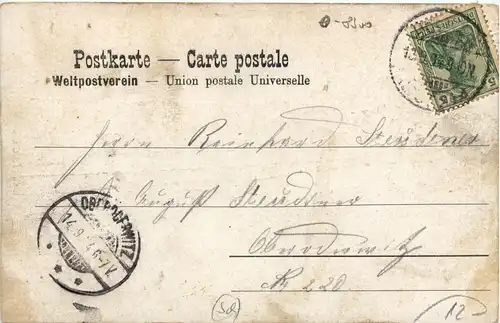 0-8300
Postkarte — Carte postale
Weltpostverein — Union postale Universelle
Herrn Reinhard Steudtner
August Steudtner
Oberoderwitz
OBERODERWITZ
14.9.
No 220
12-